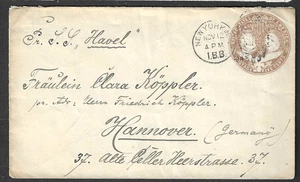 Pr. S. S. „Havel"
NEW YORK
NOV 12
4 PM
Fräulein Clara Köppler,
pr. Adr: Herrn Friedrich Köppler,
Hannover.
(Germany)
37. Alte Celler Heerstrasse. 37.